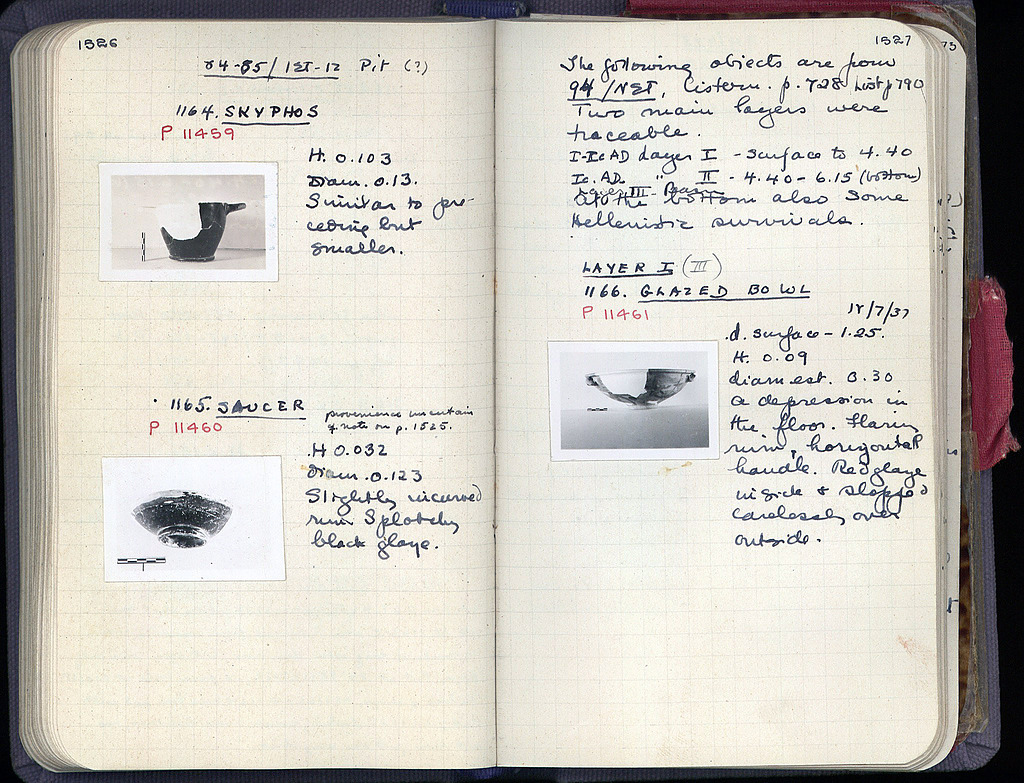 1526
84-85/ ΙΣΤ-ΙΖ Pit (?)
1164. SKYPHOS
P 11459
H. 0.103
Diam. 0.13.
Similar to pre-
ceding but
smaller.
1165. SAUCER
provenience uncertain
cf. note on p. 1525.
P 11460
H 0.032
diam. 0.123
Slightly incurved
rim. Splotchy
black glaze.
1527
The following objects are from
94/ΝΣΤ, Cistern. p. 728 List p 790
Two main layers were
traceable.
I-II c AD Layer I - surface to 4.40
I c. AD. " II - 4.40 - 6.15 (bottom)
Layer III
At the bottom also some
Hellenistic survivals.
LAYER I (III)
1166. GLAZED BOWL
P 11461
/7/37
d. surface - 1.25.
H. 0.09
diam est. 0.30
a depression in
the floor. Flaring
rim, horizontal
handle. Red glaze
inside & slopped
carelessly over
outside.